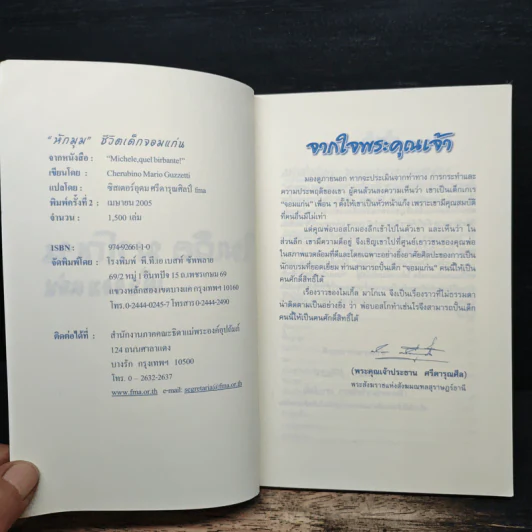 "หักมุม" ชีวิตเด็กจอมแก่น
จากหนังสือ : "Michele, quel birbante!"
เขียนโดย : Cherubino Mario Guzzetti
แปลโดย : ซิสเตอร์อุดม ศรีดารุณศิลป์ fma
พิมพ์ครั้งที่ 2 : เมษายน 2005
จำนวน : 1,500 เล่ม
ISBN : 974-92661-1-0
จัดพิมพ์โดย : โรงพิมพ์ พี.ที.เอ เบสท์ ซัพพลาย
69/2 หมู่ 1 หินทปัง 15 ถ.เพชรเกษม 69
แขวงหลักสองเขตบางแค กรุงเทพฯ 10160
โทร. 0-2444-0245-7 โทรสาร 0-2444-2490
ติดต่อได้ที่ : สำนักงานภาคคณะธิดาแม่พระองค์อุปถัมภ์
124 ถนนศาลาแดง
บางรัก กรุงเทพฯ 10500
โทร. 0 – 2632-2637
www.fma.or.th e-mail: secretariai@fma.or.th
จากใจพระคุณเจ้า
มองดูภายนอก หากจะประเมินจากท่าทาง การกระทำและ
ความประพฤติของเขา ผู้คนล้วนลงความเห็นว่า เขาเป็นเด็กเกเร
"จอมแก่น" เพื่อน ๆ ตั้งให้เขาเป็นหัวหน้าแก๊ง เพราะเขามีคุณสมบัติ
ที่คนอื่นมีไม่เท่า
แต่คุณพ่อบอสโกมองเด็กเข้าไปในตัวเขา และเห็นว่า ใน
ส่วนลึก เขามีความดีอยู่ จึงเชิญเขาไปที่ศูนย์เยาวชนของคุณพ่อ
ในสภาพแวดล้อมที่ดีและโดยเฉพาะอย่างยิ่งอาศัยศิลปะของการเป็น
นักอบรมที่ยอดเยี่ยม ท่านสามารถปั้นเด็ก "จอมแก่น" คนนี้ให้เป็น
คนศักดิ์สิทธิ์ได้
เรื่องราวของไมเกิ้ล มาโกเน จึงเป็นเรื่องราวที่ไม่ธรรมดา
น่าติดตามเป็นอย่างยิ่ง ว่า พ่อบอสโกทำเช่นไรจึงสามารถปั้นเด็ก
คนนี้ให้เป็นคนศักดิ์สิทธิ์ได้
(พระคุณเจ้าประธาน ศรีดารุณศีล)
พระสังฆราชแห่งสังฆมณฑลสุราษฎร์ธานี